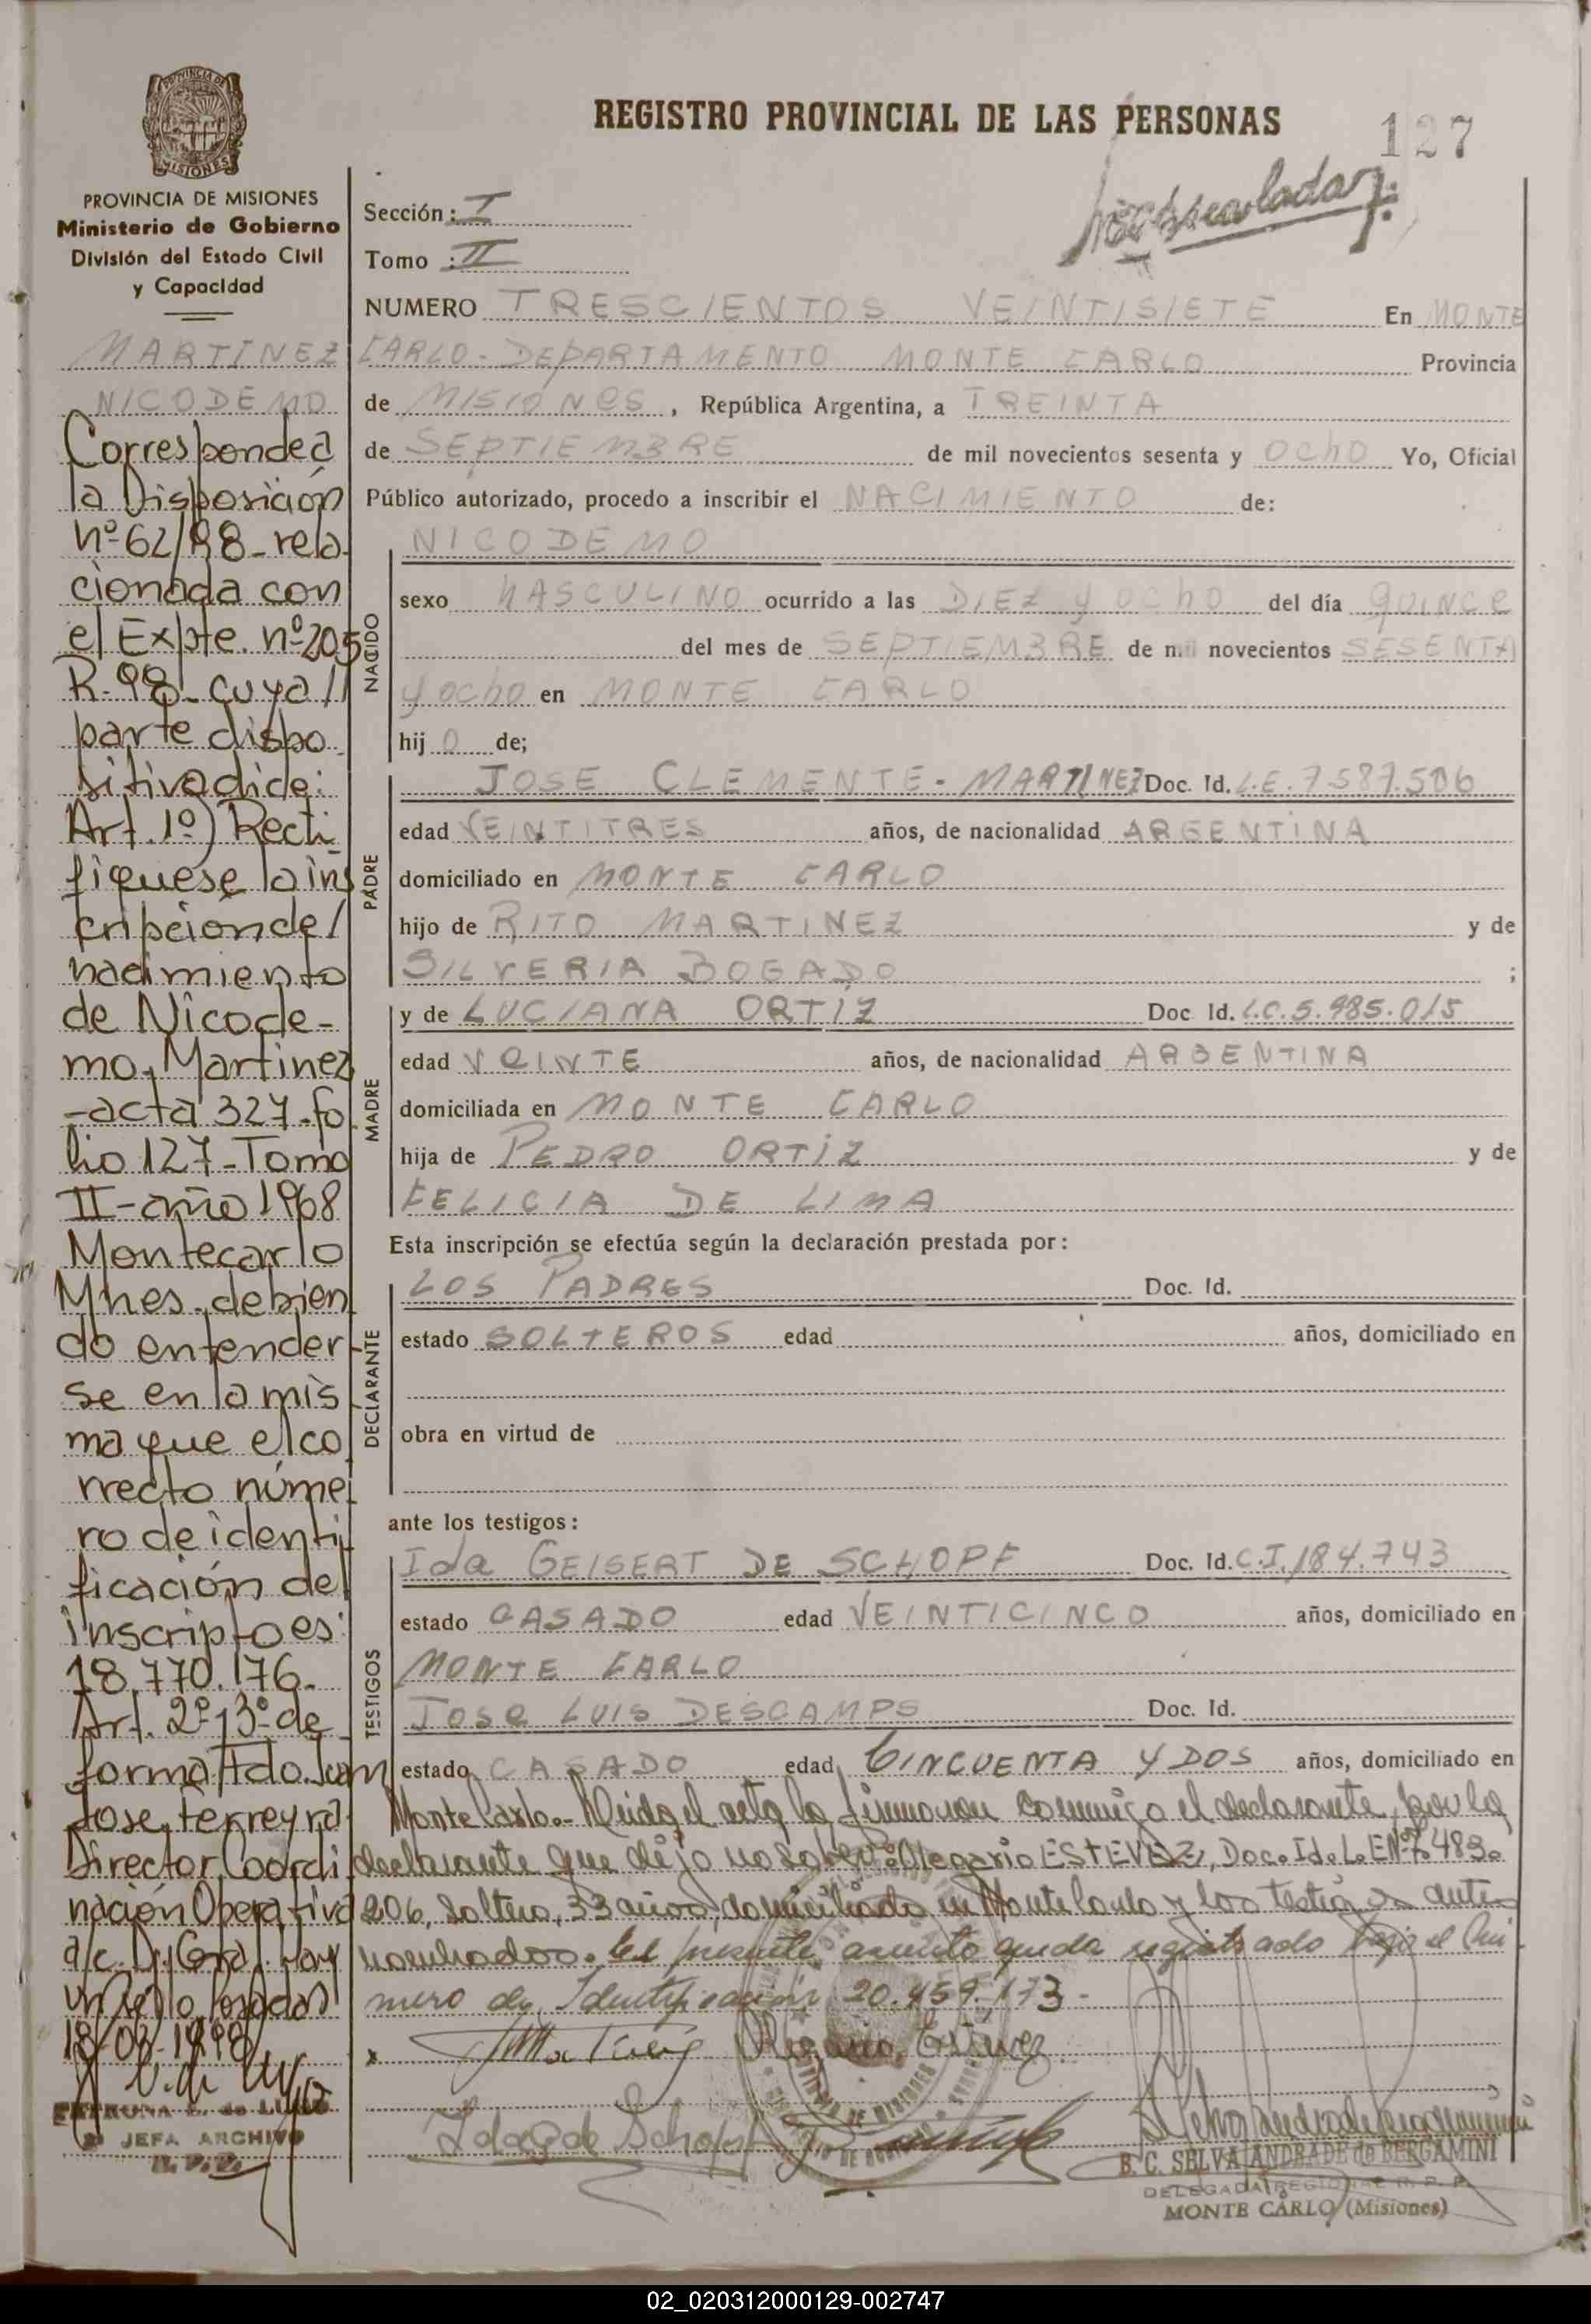 PROVINCIA DE MISIONES
REGISTRO PROVINCIAL DE LAS PERSONAS
127
PROVINCIA DE MISIONES
Ministerio de Gobierno
División del Estado Civil
y Capacidad
MARTINEZ
NICODEMO
Corresponde a
la Disposición
nº 62/98 - rela
cionada con
el Expte. nº 205
R-98- cuya //
parte dispo
sitiva dice:
Art. 1º) Recti
fiquese la ins
cripción del
nacimiento
de Nicode-
mo, Martinez
-acta 327-fo
lio 127-Tomo
II-año 1968
Montecarlo
Mnes. debien
do entender
se en la mis
ma que el co
rrecto núme
ro de identi
ficación del
inscripto es:
18.770.176-
Art. 2º y 3º de
forma Fdo. Juan
Jose Ferreyra
Director Coordi
nación Operativa
a/c. Dir. Gral. Hay
un sello Posadas
18/03-1998
JEFA ARCHIVO
Sección: I
Tomo: II
NUMERO TRESCIENTOS VEINTISIETE En MONTE
CARLO - DEPARTAMENTO MONTE CARLO Provincia
de MISIONES, República Argentina, a TREINTA
de SEPTIEMBRE de mil novecientos sesenta y OCHO Yo, Oficial
Público autorizado, procedo a inscribir el NACIMIENTO de:
NACIDO
NICODEMO
sexo MASCULINO ocurrido a las DIEZ y OCHO del día QUINCE
del mes de SEPTIEMBRE de mil novecientos SESENTA
y OCHO en MONTE CARLO
hijo de;
PADRE
JOSE CLEMENTE - MARTINEZ Doc. Id. L.E. 7587.506
edad VEINTITRES años, de nacionalidad ARGENTINA
domiciliado en MONTE CARLO
hijo de RITO MARTINEZ y de
SILVERIA BOGADO ;
MADRE
y de LUCIANA ORTIZ Doc. Id. L.C. 5.985.015
edad VEINTE años, de nacionalidad ARGENTINA
domiciliada en MONTE CARLO
hija de PEDRO ORTIZ y de
FELICIA DE LIMA
Esta inscripción se efectúa según la declaración prestada por:
DECLARANTE
LOS PADRES Doc. Id.
estado SOLTEROS edad años, domiciliado en
obra en virtud de
ante los testigos:
TESTIGOS
Ida GEISERT DE SCHOPF Doc. Id. C.I. 184.743
estado CASADO edad VEINTICINCO años, domiciliado en
MONTE CARLO
JOSE LUIS DESCAMPS Doc. Id.
estado CASADO edad CINCUENTA y DOS años, domiciliado en
Monte Carlo.- Leida el acta la firmaron conmigo el declarante, por la
declarante que dijo no saber: Olegario ESTEVEZ, Doc. Id. L.E. Nº 7.483.
206, soltero, 33 años, domiciliado en Monte Carlo y los testigos antes
nombrados. El presente asiento queda registrado bajo el Nú
mero de Identificación 20.459.173-
Olegario Estevez
Ida G de Schopf
B. C. SELVA ANDRADE de BERGAMINI
DELEGADA REGIONAL R. P. P.
MONTE CARLO (Misiones)
02_020312000129-002747